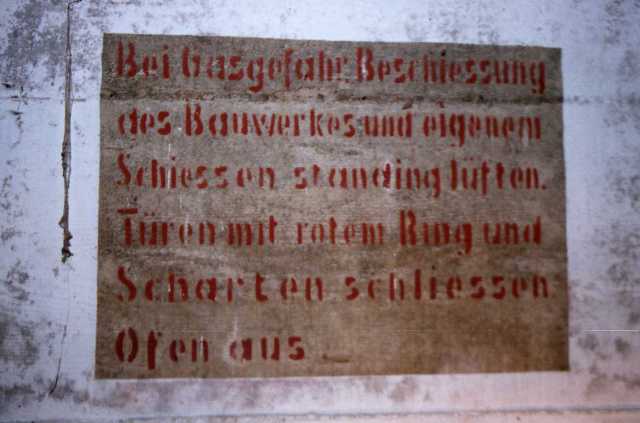 Bei Gasgefahr Beschiessung
des Bauwerkes und eigenem
Schiessen standing lüften.
Türen mit rotem Ring und
Scharten schliessen
Ofen aus